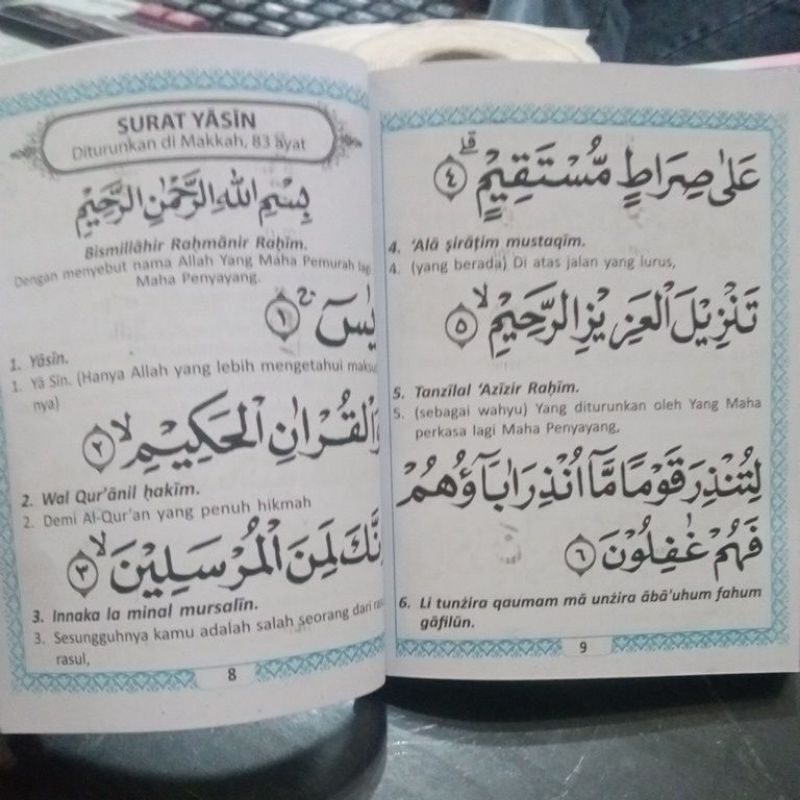 SURAT YĀSĪN
Diturunkan di Makkah, 83 ayat
بِسْمِ اللهِ الرَّحْمٰنِ الرَّحِيْمِ
Bismillāhir Raḥmānir Raḥīm.
Dengan menyebut nama Allah Yang Maha Pemurah lagi
Maha Penyayang.
يٰسۤ ۚ ١
1. Yāsīn.
1. Yā Sīn. (Hanya Allah yang lebih mengetahui maksud
nya)
وَالْقُرْاٰنِ الْحَكِيْمِۙ ٢
2. Wal Qur’ānil ḥakīm.
2. Demi Al-Qur’an yang penuh hikmah
اِنَّكَ لَمِنَ الْمُرْسَلِيْنَۙ ٣
3. Innaka la minal mursalīn.
3. Sesungguhnya kamu adalah salah seorang dari rasul-
rasul,
8
عَلٰى صِرَاطٍ مُّسْتَقِيْمٍۗ ٤
4. ‘Alā ṣirāṭim mustaqīm.
4. (yang berada) Di atas jalan yang lurus,
تَنْزِيْلَ الْعَزِيْزِ الرَّحِيْمِۙ ٥
5. Tanzīlal ‘Azīzir Raḥīm.
5. (sebagai wahyu) Yang diturunkan oleh Yang Maha
perkasa lagi Maha Penyayang,
لِتُنْذِرَ قَوْمًا مَّآ اُنْذِرَ اٰبَاۤؤُهُمْ
فَهُمْ غٰفِلُوْنَ ٦
6. Li tunżira qaumam mā unżira ābā’uhum fahum
gāfilūn.
9